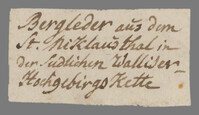 Bergleder aus dem
St. Niklausthal in
der Südlichen Walliser-
Hochgebirgs Kette